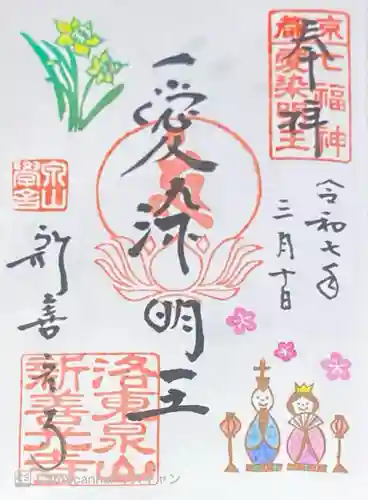 奉拝
京都
七福神
愛染明王
令和七年
三月十日
愛染明王
新善光寺
洛東泉山
新善光寺